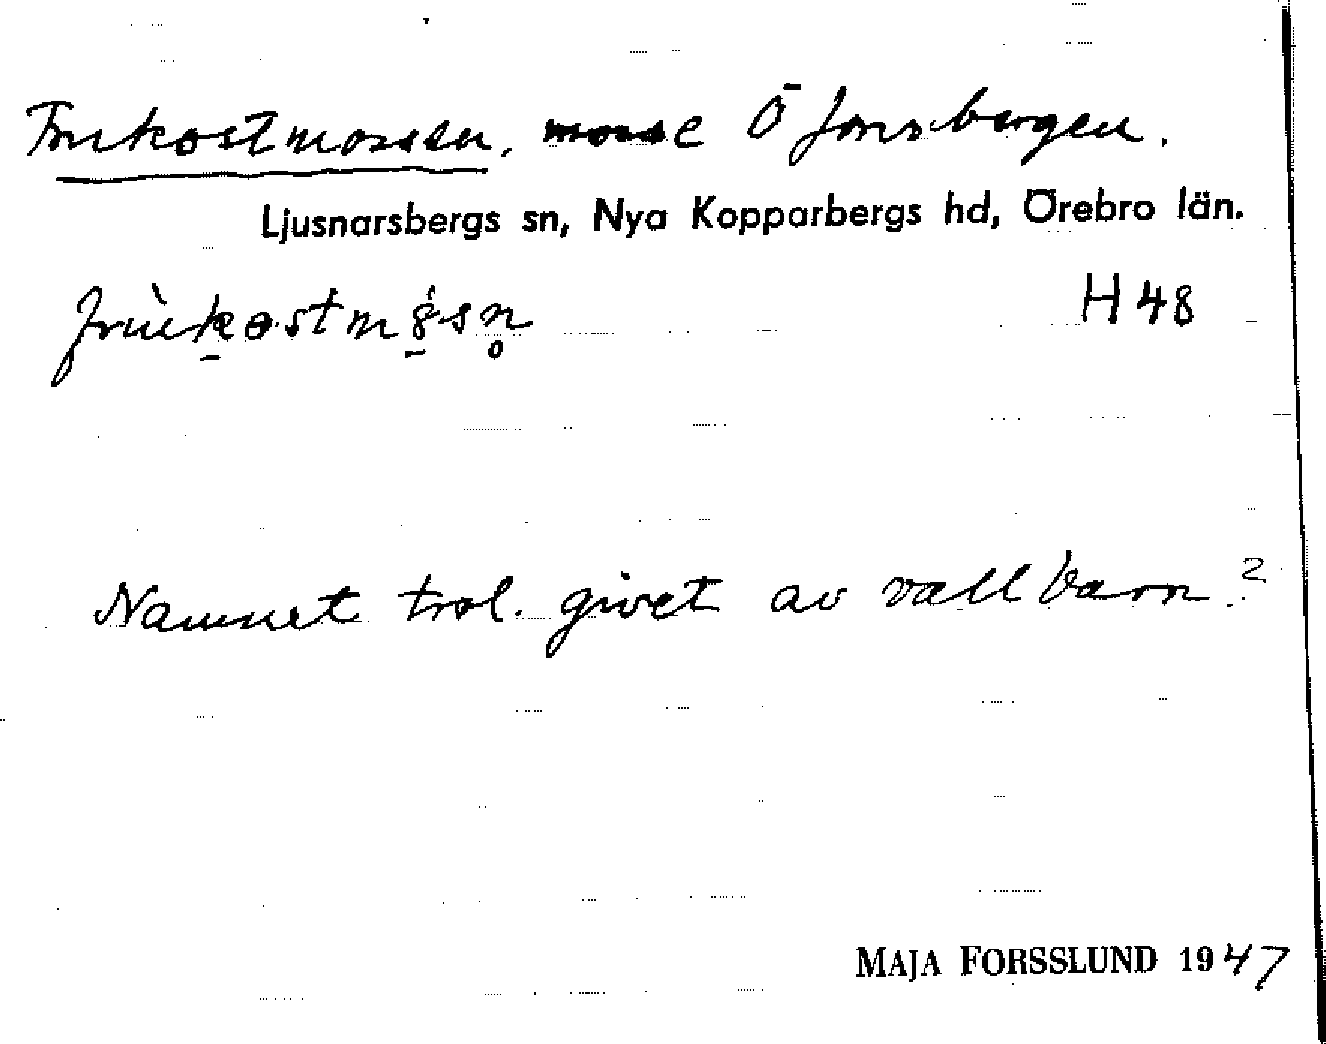 Frukostmossen, mosse Ö Jonsbergen.
Ljusnarsbergs sn, Nya Kopparbergs hd, Örebro län.
H 48
Namnet trol. givet av vallbarn?
MAJA FORSSLUND 1947